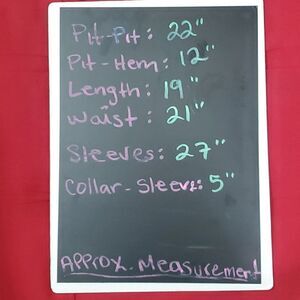 Pit-Pit: 22"
Pit-Hem: 12"
Length: 19"
Waist: 21"
Sleeves: 27"
Collar-Sleeve: 5"
Approx. Measurement